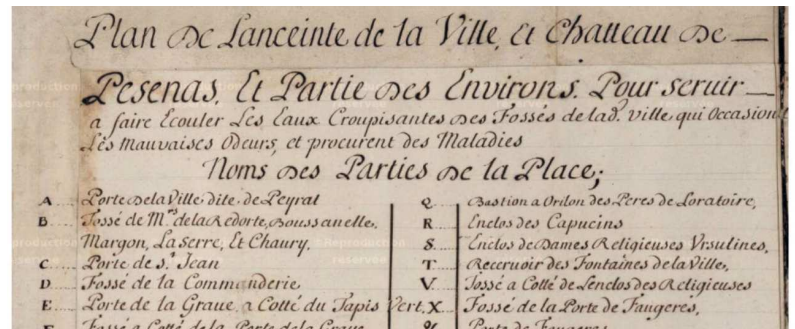 Plan De Lanceinte de la Ville, Et Chatteau De
Pesenas, Et Partie Des Environs, Pour seruir
a faire Ecouler Les Eaux Croupisantes Des Fossés de lad. ville qui Occasionent
Les Mauvaises Odeurs, et procurent des Maladies
Noms Des Parties De la Place;
A Porte De la Ville dite de Peyrat
B Fossé de Mrs. de la Redorte, Boussanelle,
Margon, La serre, Et Chaury.
C Porte de st. Jean
D Fossé de la Commanderie
E Porte de la Graue a Cotté du Tapis Vert.
F Fossé a Cotté de la Porte de la Graue
Q Bastion a Orilon des Peres de Loratoire,
R Enclos des Capucins
S Enclos de Dames Religieuses Vrsulines,
T Receruoir des Fontaines de la Ville,
V Fossé a Cotté de Lenclos des Religieuses
X Fossé de la Porte de Faugeres,
Y Porte de Faugeres